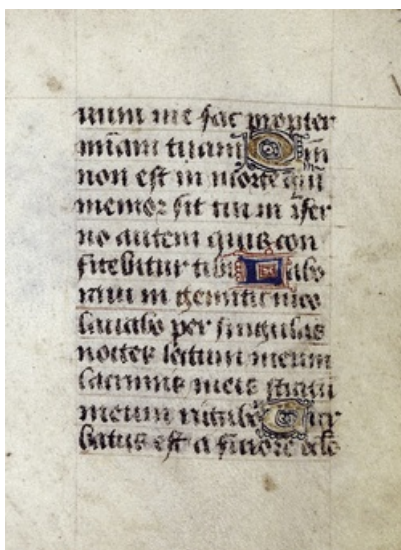 uum me fac propter
mīam tuam Qm̄
non est in morte qui
memor sit tui in īfer
no autem quis con
fitebitur tibi Labo
raui in gemitu meo
lauabo per singulas
noctes lectum meum
lacrimis meis stratū
meum rigabo Tur
batus est a furore